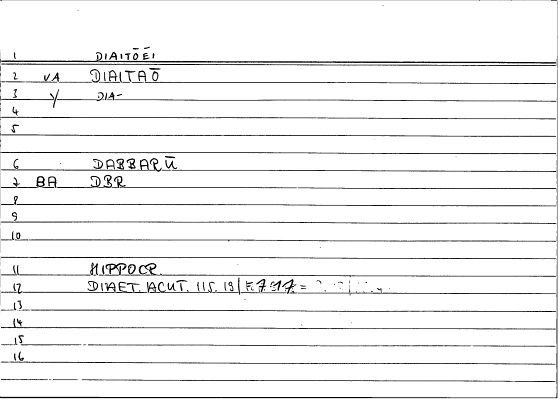 1 DIAITŌĒI
2 VA DIAITAŌ
3 Y DIA-
4
5
6 DABBARŪ
7 BA DBR
8
9
10
11 HIPPOCR.
12 DIAET. ACUT. 115. 19 | =
13
14
15
16